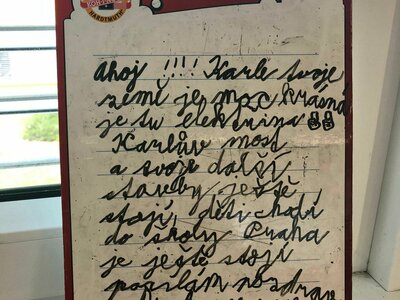 HARDTMUTH
Ahoj !!!! Karle tvoje
země je moc krásná
je tu elektřina
Karlův most
a tvoje další
stavby ještě
stojí, děti chodí
do školy Praha
je ještě stojí
posílám pozdrav